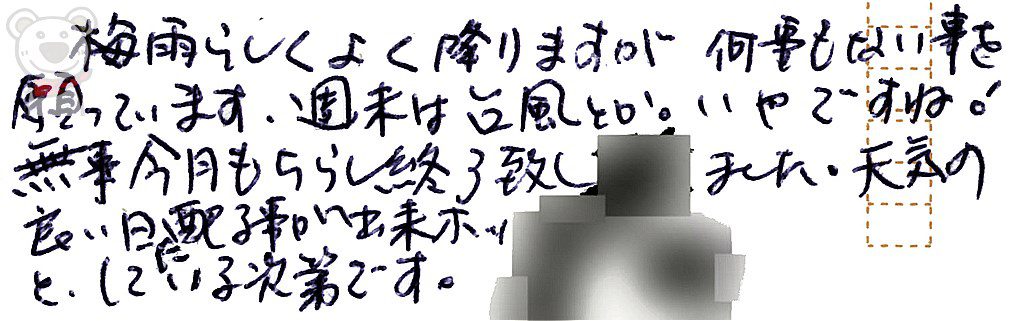 梅雨らしくよく降りますが 何事もない事を
願っています、週末は台風とか。いやですね!
無事今月もちらし終了致しました。天気の
良い日に配る事が出来ホッ
と、している次第です。